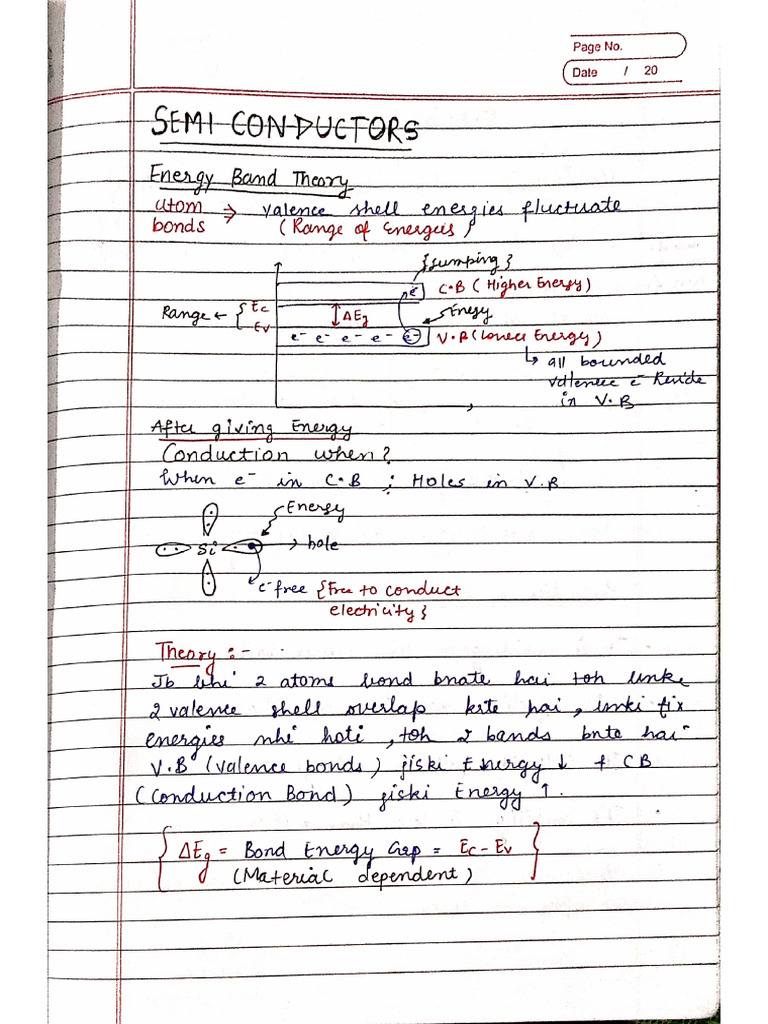 Page No.
Date / 20
SEMI CONDUCTORS
Energy Band Theory
atom bonds ⇒ valence shell energies fluctuate
(Range of Energies)
{Jumping}
e⁻ C.B (Higher Energy)
Range ← { Ec
Ev
ΔEg
Energy
e⁻ e⁻ e⁻ e⁻ e⁻ V.B (Lower Energy)
↳ all bounded
valence e⁻ Reside
in V.B
After giving Energy
Conduction when?
When e⁻ in C.B ; Holes in V.B
Energy
Si → hole
e⁻ free {Free to conduct
electricity}
Theory :-
Jb bhi 2 atoms bond bnate hai toh unke
2 valence shell overlap krte hai, unki fix
energies nhi hoti, toh 2 bands bnte hai
V.B (valence bonds) jiski Energy ↓ & CB
(Conduction Bond) jiski Energy ↑.
{ ΔEg = Bond Energy Gap = Ec - Ev }
(Material dependent)